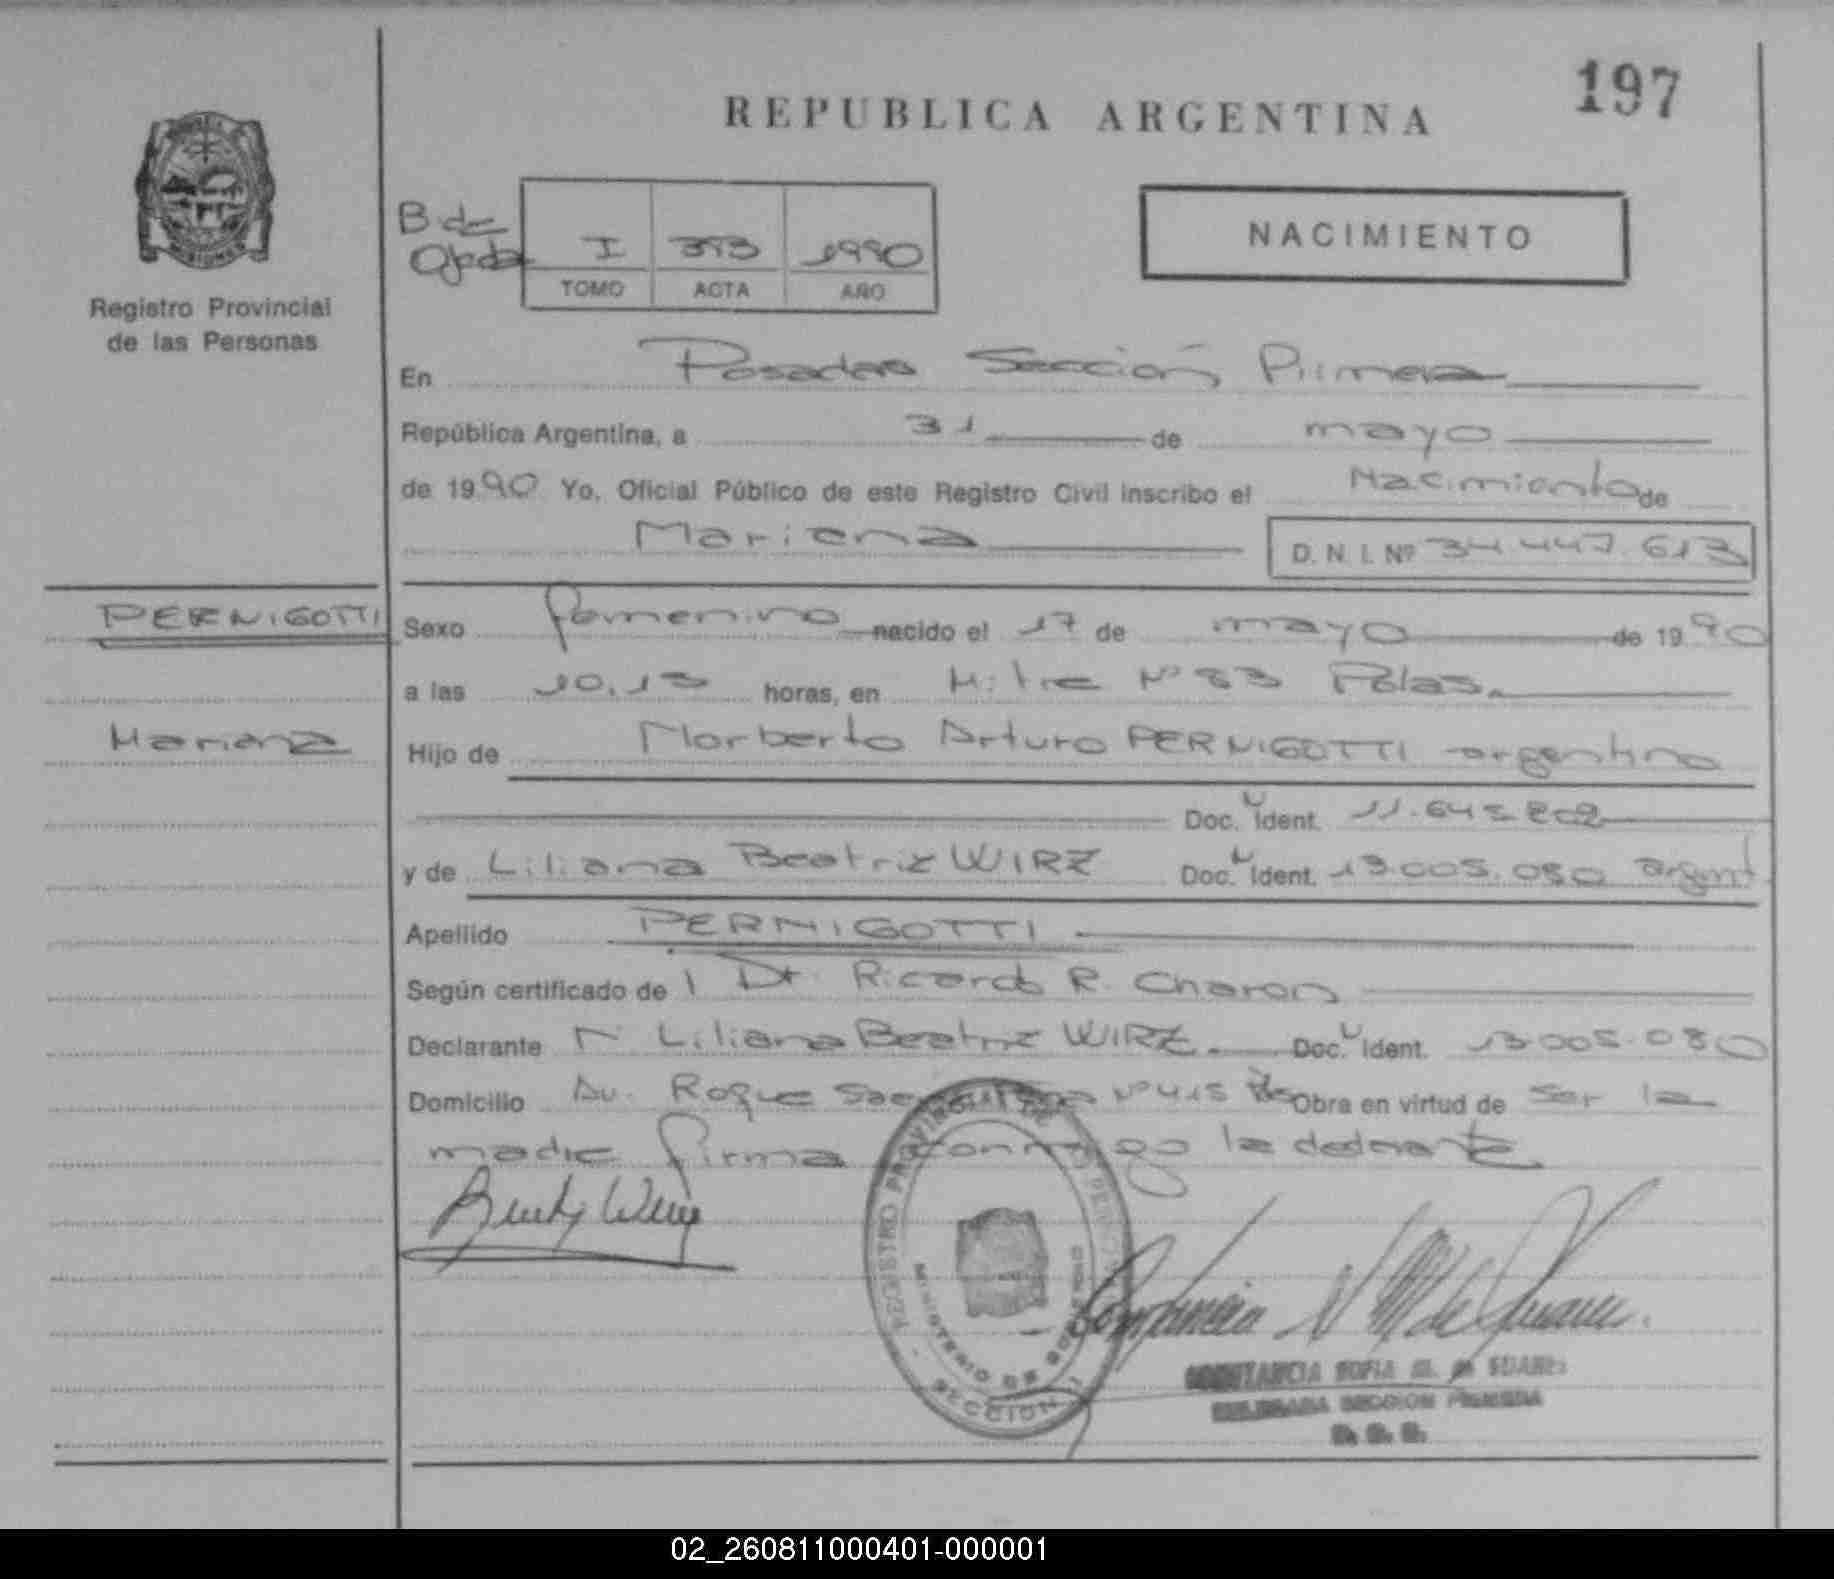 197
REPUBLICA ARGENTINA
Registro Provincial
de las Personas
B de
Ojeda
I 393 1990
TOMO ACTA AÑO
NACIMIENTO
En Posadas Sección Primera
República Argentina, a 31 de mayo
de 1990 Yo, Oficial Público de este Registro Civil inscribo el Nacimiento de
Mariana D. N. I. Nº 34.447.613
PERNIGOTTI
Mariana
Sexo femenino nacido el 17 de mayo de 1990
a las 10,15 horas, en Mitre Nº 83 Pdas.
Hijo de Norberto Arturo PERNIGOTTI argentino
Doc. U Ident. 11.645.802
y de Liliana Beatriz WIRZ Doc. U Ident. 13.005.080 argent.
Apellido PERNIGOTTI
Según certificado de l Dr. Ricardo R. Charon
Declarante Liliana Beatriz WIRZ. Doc. U Ident. 13.005.080
Domicilio Av. Roque Nº 415 Pdas Obra en virtud de ser la
madre firma conmigo la declarante
REGISTRO PROVINCIAL DE
MINISTERIO DE
SECCION 1
CONSTANCIA SOFIA M. de SUAREZ
DELEGADA SECCION PRIMERA
02_260811000401-000001